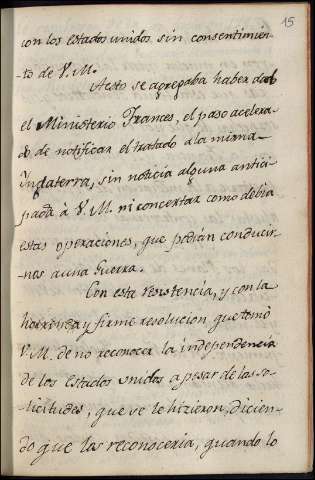 15
con los estados unidos sin consentimien-
to de V. M.
Aesto se agregaba haber dado
el Ministerio Frances, el paso acelera-
do de notificar el tratado ala misma
Ynglaterra, sin noticia alguna antici-
pada à V. M. ni concertar como debia
estas operaciones, que podian conducir-
nos auna Guerra.
Con esta resistencia, y con la
y firme resolucion que tomó
V. M. de no reconocer la independencia
de los Estados unidos a pesar de las so-
licitudes, que se le hizieron, dicien-
do que las reconoceria, quando lo